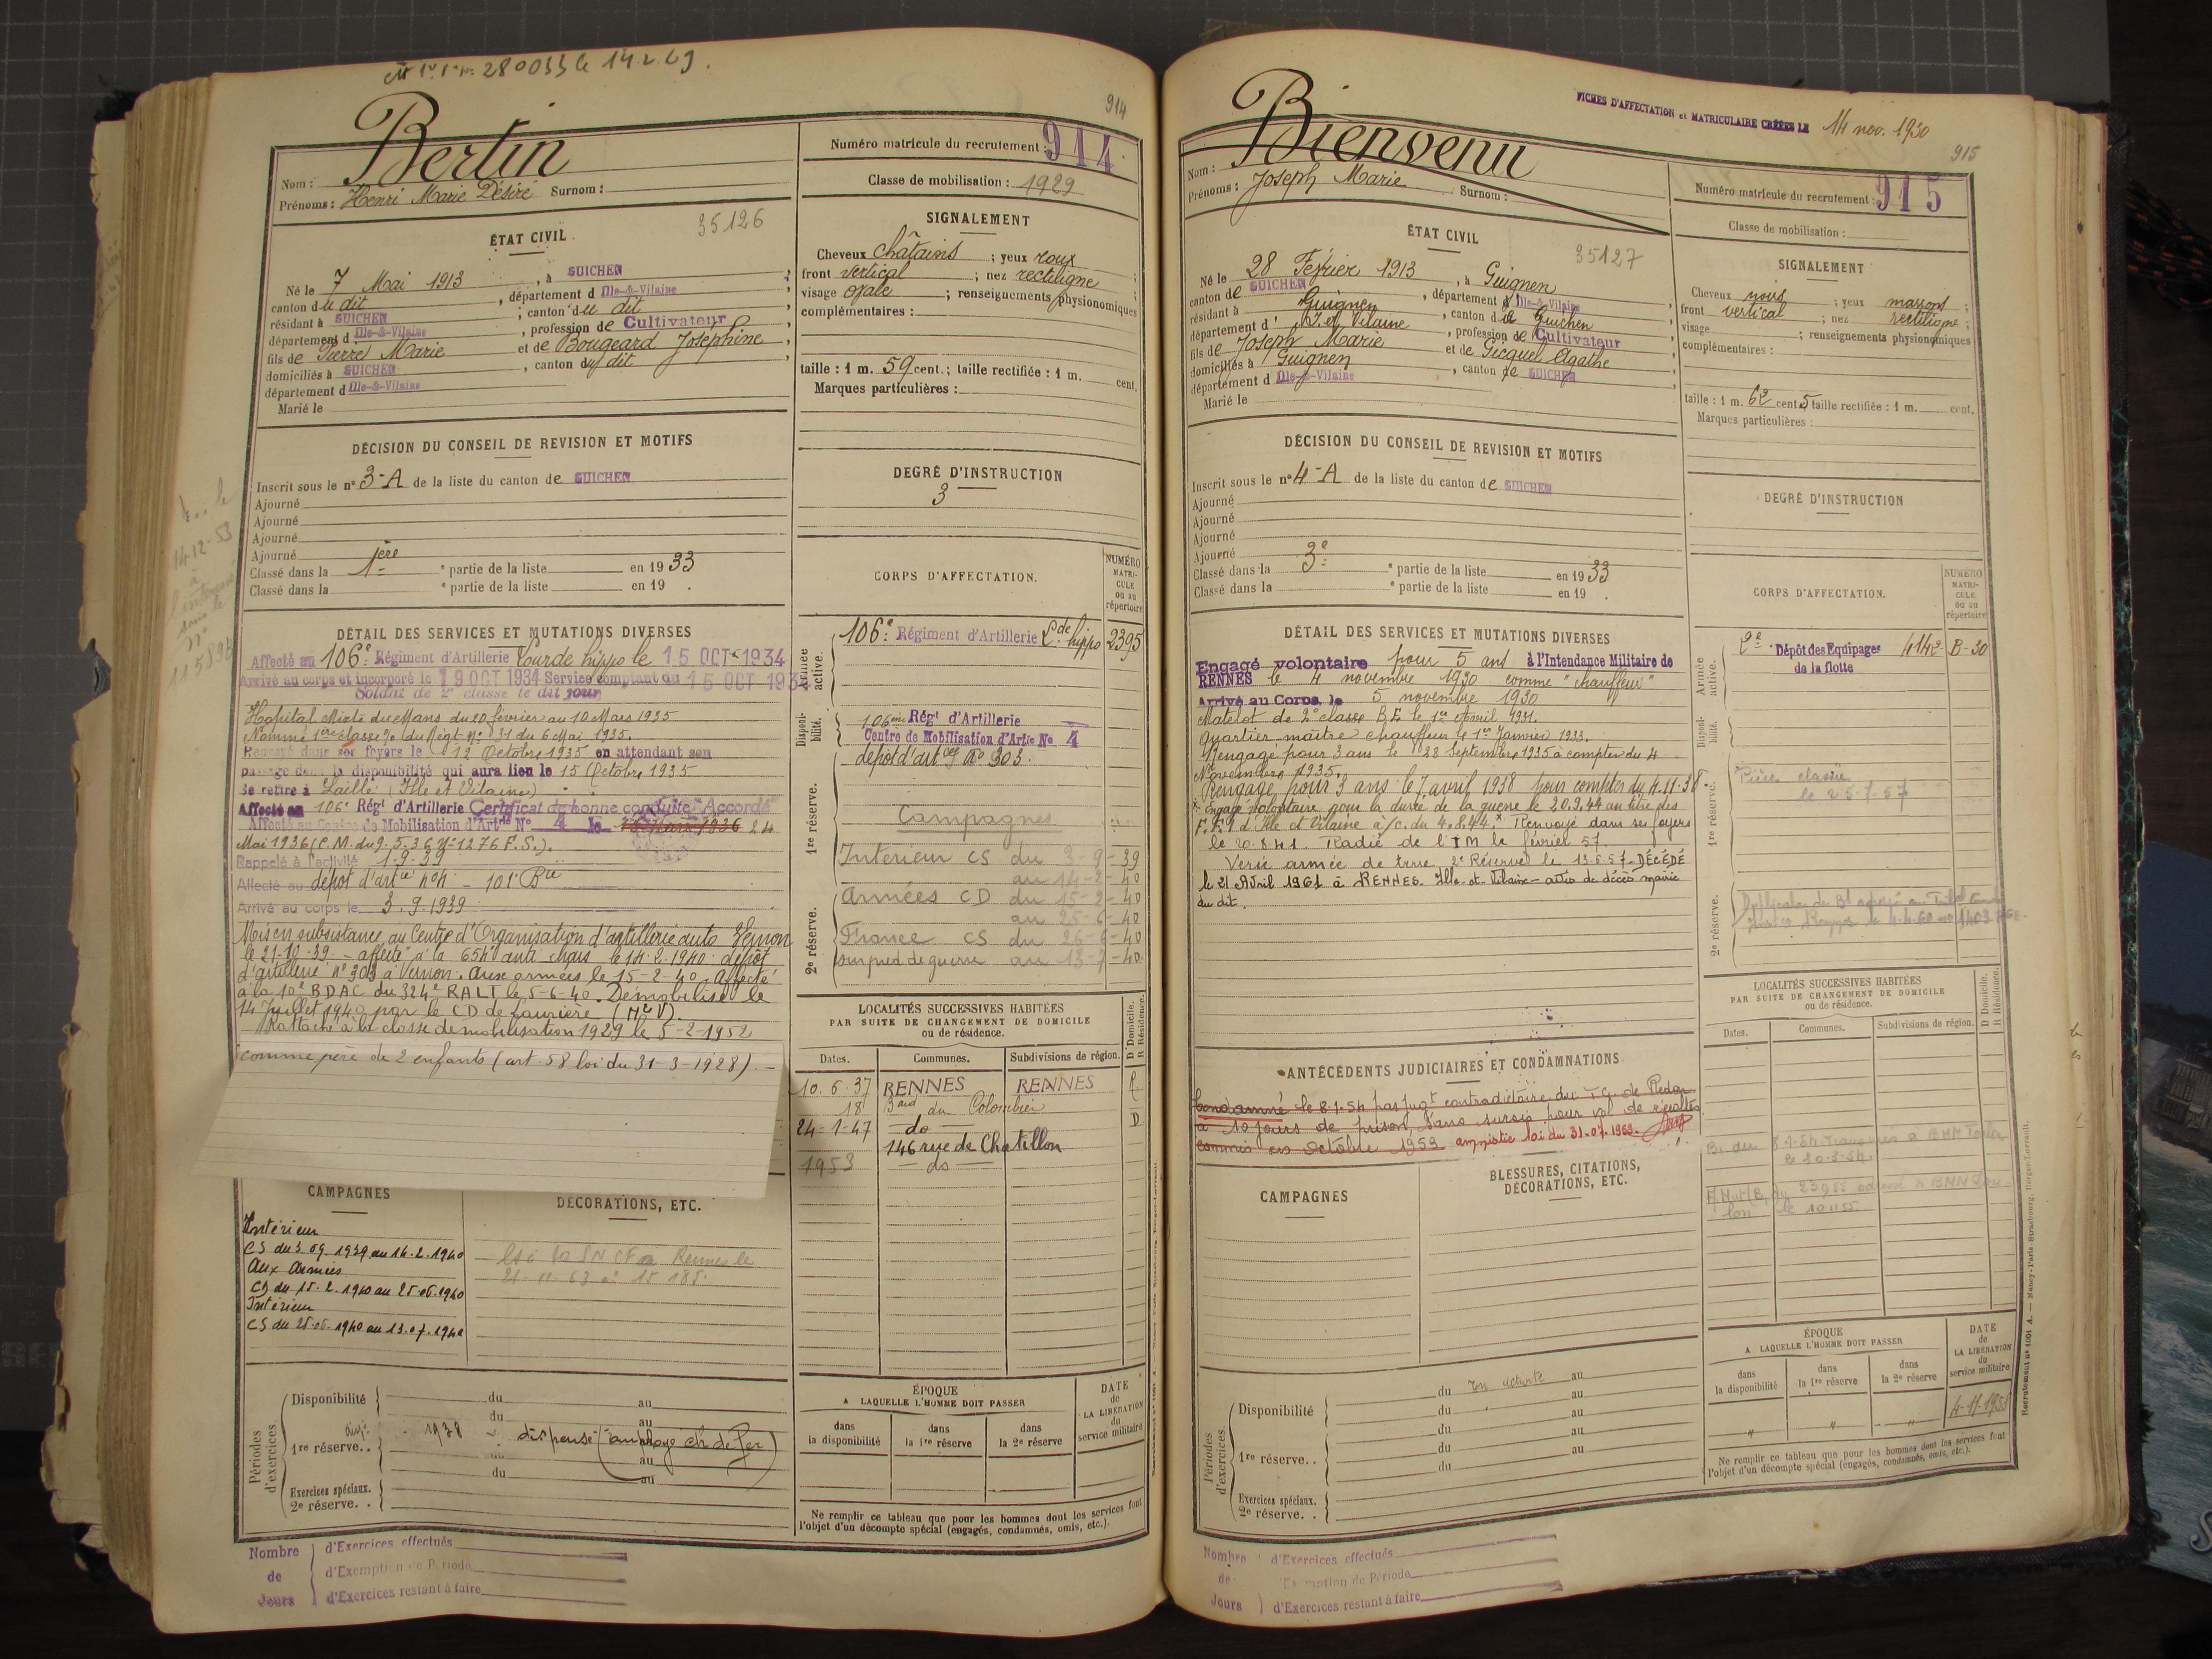 280033 le 14 2 69.
914
Bertin
Nom :
Prénoms : Henri Marie Désiré Surnom :
Numéro matricule du recrutement : 914
Classe de mobilisation : 1929
ÉTAT CIVIL
35126
Né le 7 Mai 1913, à GUICHEN
canton du dit, département d Ille-&-Vilaine
résidant à GUICHEN, canton du dit
département d Ille-&-Vilaine, profession de Cultivateur
fils de Pierre Marie et de Bougeard Joséphine
domiciliés à GUICHEN, canton du dit
département d Ille-&-Vilaine
Marié le
SIGNALEMENT
Cheveux châtains ; yeux roux
front vertical ; nez rectiligne
visage ovale ; renseignements physionomiques
complémentaires :
taille : 1 m. 59 cent. ; taille rectifiée : 1 m. cent.
Marques particulières :
DÉCISION DU CONSEIL DE REVISION ET MOTIFS
Inscrit sous le n° 3-A de la liste du canton de GUICHEN
Ajourné
Ajourné
Ajourné
Ajourné
Classé dans la 1ère partie de la liste en 1933
Classé dans la partie de la liste en 19 .
DEGRÉ D'INSTRUCTION
3
CORPS D'AFFECTATION.
NUMÉRO MATRI-CULE ou au répertoire
DÉTAIL DES SERVICES ET MUTATIONS DIVERSES
Affecté au 106e Régiment d'Artillerie Lourde hippo le 15 OCT 1934
Arrivé au corps et incorporé le 19 OCT 1934 Service comptant du 15 OCT 1934
Soldat de 2e classe le dit jour
Hôpital Mixte du Mans du 20 février au 10 Mars 1935
Nommé 1ère classe du Régt N° 31 du 6 Mai 1935.
Renvoyé dans ses foyers le 12 Octobre 1935 en attendant son
passage dans la disponibilité qui aura lieu le 15 Octobre 1935
Se retire à Laillé (Ille et Vilaine)
Affecté au 106e Régt d'Artillerie Certificat de bonne conduite "Accordé"
Affecté au Centre de Mobilisation d'Artrie N° 4 le 24
Mai 1936 (C.M. du 9.5.36 N°1276 E.S.).
Rappelé à l'activité 1.9.39
Affecté au dépôt d'artie n°4 - 101e Bie
Arrivé au corps le 3.9.1939
Mis en subsistance au Centre d'Organisation d'artillerie auto Vernon
le 21-10-39 - affecté à la 654 anti chars le 14-2-1940. dépôt
d'artillerie n°303 à Vernon. Aux armées le 15-2-40. Affecté
à la 10e BDAC du 324e RALT le 5-6-40. Démobilisé le
14 Juillet 1940 par le CD de Laurière (Hte V).
Rattaché à la classe de mobilisation 1929 le 5-2-1952
comme père de 2 enfants (art. 58 loi du 31-3-1928). -
Armée active.
106e Régiment d'Artillerie Lde hippo 2395
Disponibilité.
106ème Régt d'Artillerie
Centre de Mobilisation d'Artie N° 4
dépôt d'artie N° 303.
1re réserve.
Campagnes
Intérieur CS du 3-9-39
au 14-2-40
2e réserve.
Armées CD du 15-2-40
au 25-6-40
France CS du 26-6-40
sur pied de guerre au 13-7-40
LOCALITÉS SUCCESSIVES HABITÉES
PAR SUITE DE CHANGEMENT DE DOMICILE
ou de résidence.
D Domicile. R Résidence.
Dates. Communes. Subdivisions de région.
10.6.37 RENNES RENNES R
18 Bard du Colombier
24-1-47 do D
146 rue de Chatillon
1953 do
CAMPAGNES
Intérieur
CS du 3.09.1939 au 14.2.1940
Aux Armées
CD du 15.2.1940 au 25.06.1940
Intérieur
CS du 25.06.1940 au 13.07.1940
DÉCORATIONS, ETC.
SNCF Rennes le
21-11-63
Périodes d'exercices.
Disponibilité du au
du au
1re réserve. . 1938 dispensé (employé ch de fer)
du au
Exercices spéciaux.
2e réserve. .
ÉPOQUE
A LAQUELLE L'HOMME DOIT PASSER
dans la disponibilité dans la 1re réserve dans la 2e réserve
DATE de LA LIBÉRATION du service militaire
Ne remplir ce tableau que pour les hommes dont les services font
l'objet d'un décompte spécial (engagés, condamnés, omis, etc.).
Nombre de Jours
d'Exercices effectués
d'Exemption de Période
d'Exercices restant à faire
FICHES D'AFFECTATION et MATRICULAIRE CRÉÉES LE 14 nov. 1930
915
Bienvenu
Nom :
Prénoms : Joseph Marie Surnom :
Numéro matricule du recrutement : 915
Classe de mobilisation :
ÉTAT CIVIL
35127
Né le 28 Février 1913, à Guignen
canton de GUICHEN, département d Ille-&-Vilaine
résidant à Guignen, canton de Guichen
département d' I. et Vilaine, profession de Cultivateur
fils de Joseph Marie et de Gicquel Agathe
domiciliés à Guignen, canton de GUICHEN
département d Ille-&-Vilaine
Marié le
SIGNALEMENT
Cheveux noirs ; yeux marrons ;
front vertical ; nez rectiligne ;
visage ; renseignements physionomiques
complémentaires :
taille : 1 m. 62 cent. 5 taille rectifiée : 1 m. cent.
Marques particulières :
DÉCISION DU CONSEIL DE REVISION ET MOTIFS
Inscrit sous le n° 4-A de la liste du canton de GUICHEN
Ajourné
Ajourné
Ajourné
Ajourné
Classé dans la 3e partie de la liste en 1933
Classé dans la partie de la liste en 19 .
DEGRÉ D'INSTRUCTION
CORPS D'AFFECTATION.
NUMÉRO MATRI-CULE ou au répertoire
DÉTAIL DES SERVICES ET MUTATIONS DIVERSES
Engagé volontaire pour 5 ans à l'Intendance Militaire de
RENNES le 4 novembre 1930 comme "chauffeur"
Arrivé au Corps, le 5 novembre 1930
Matelot de 2e classe B.E le 1er Avril 1931.
Quartier-maître chauffeur le 1er Janvier 1933.
Rengagé pour 3 ans le 28 Septembre 1935 à compter du 4
Novembre 1935.
Rengagé pour 3 ans le 7 avril 1938 pour compter du 4.11.38.
x Engagé volontaire pour la durée de la guerre le 20.9.44 au titre des
F.F.I d'Ille et Vilaine à/c. du 4.8.44. x Renvoyé dans ses foyers
le 20.8.41. Radié de l'IM le février 57.
Versé armée de terre 2e Réserve le 13.6.57. DÉCÉDÉ
le 21 Avril 1961 à RENNES. Ille-et-Vilaine - actes de décès mairie
du dit.
Armée active.
2e Dépôt des Equipages 4142 B-30
de la flotte
Disponibilité.
1re réserve.
Pièce classée
le 25-7-57
2e réserve.
ANTÉCÉDENTS JUDICIAIRES ET CONDAMNATIONS
Condamné le 8.1.54 par jugt contradictoire du T.C. de Redon
à 10 jours de prison sans sursis pour vol de récoltes
commis en Octobre 1953. amnistie loi du 31.07.1963.
CAMPAGNES
BLESSURES, CITATIONS,
DÉCORATIONS, ETC.
LOCALITÉS SUCCESSIVES HABITÉES
PAR SUITE DE CHANGEMENT DE DOMICILE
ou de résidence.
D Domicile. R Résidence.
Dates. Communes. Subdivisions de région.
Périodes d'exercices.
Disponibilité du En activité au
du au
du au
1re réserve. . du au
du au
Exercices spéciaux.
2e réserve. .
ÉPOQUE
A LAQUELLE L'HOMME DOIT PASSER
dans la disponibilité dans la 1re réserve dans la 2e réserve
DATE de LA LIBÉRATION du service militaire
" " " 4-11-1958
Ne remplir ce tableau que pour les hommes dont les services font
l'objet d'un décompte spécial (engagés, condamnés, omis, etc.).
Nombre de Jours
d'Exercices effectués
d'Exemption de Période
d'Exercices restant à faire
Recrutement n° 1091 A. — Nancy-Paris-Strasbourg, Berger-Levrault.